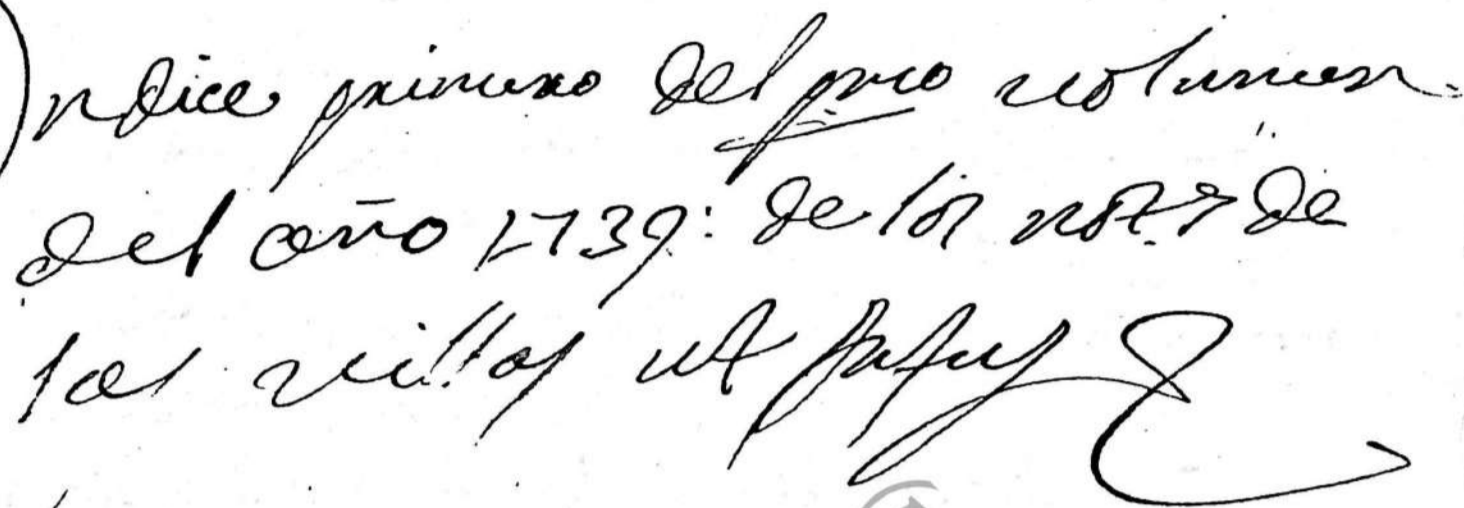 Indice primero del prio volumen
del año 1739: de los not.s de
las villas ut supra